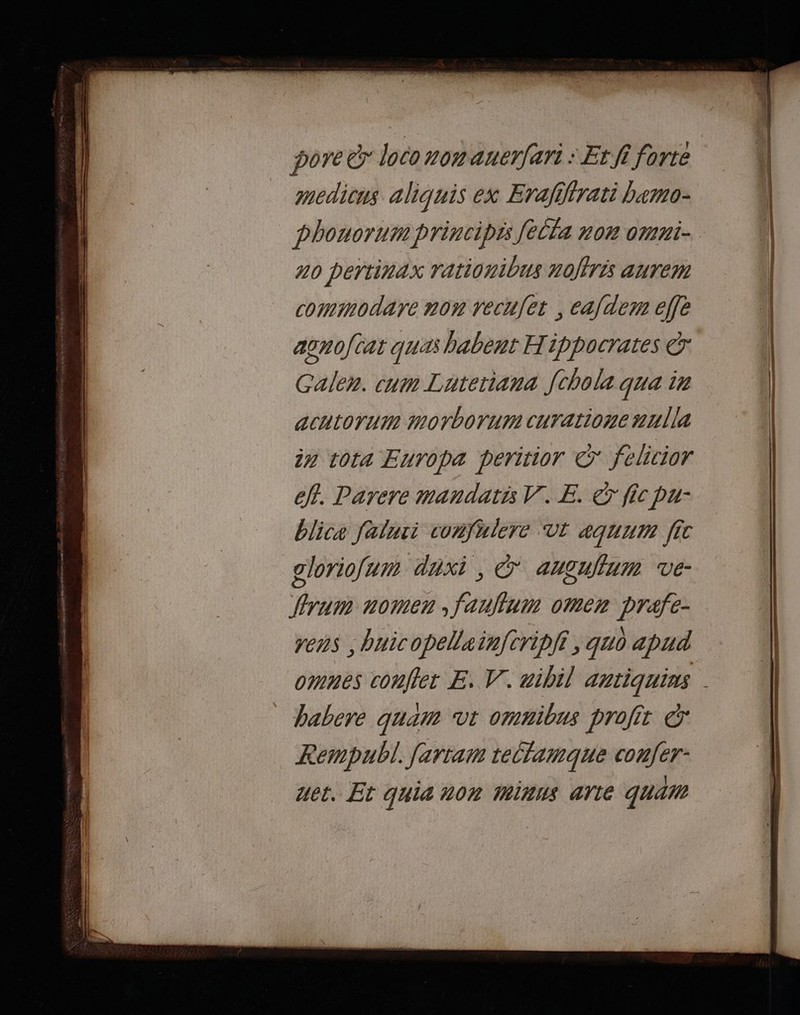 pore & loco non auerſari : Et ſi fortè
medicus aliquis ex Eraſiſtrati hæmo-
phonorum principis ſecta non omni-
no pertinax rationibus noſtris aurem
commodare non recuſet , eaſdem eſſe
agnoſcat quas habent Hippocrates &
Galen. cum Lutetiana ſchola qua in
acutorum morborum curatione nulla
in tota Europa peritior & felicior
eſt. Parere mandatis V. E. & ſic pu-
blicæ ſaluti conſulere vt æquum ſic
glorioſum duxi , & auguſtum ve-
ſtrum nomen , fauſtum omen præfe-
rens , huic opellæ inſcripſi , quò apud
omnes conſtet E. V. nihil antiquius
habere quàm vt omnibus proſit &
Rempubl. ſartam tectamque conſer-
uet. Et quia non minus arte quàm